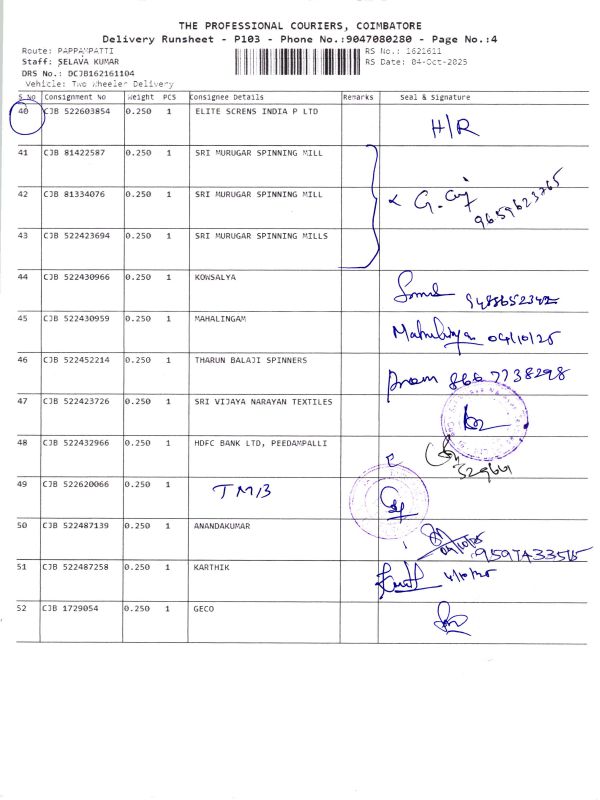 THE PROFESSIONAL COURIERS, COIMBATORE
Delivery Runsheet - P103 - Phone No.:9047080280 - Page No.:4
Route: PAPPAMPATTI
RS No.: 1621611
Staff: SELAVA KUMAR
RS Date: 04-Oct-2025
DRS No.: DCJB162161104
Vehicle: Two Wheeler Delivery
S.No Consignment No Weight PCS Consignee Details Remarks Seal & Signature
40 CJB 522603854 0.250 1 ELITE SCRENS INDIA P LTD H/R
41 CJB 81422587 0.250 1 SRI MURUGAR SPINNING MILL
42 CJB 81334076 0.250 1 SRI MURUGAR SPINNING MILL 9659623765
43 CJB 522423694 0.250 1 SRI MURUGAR SPINNING MILLS
44 CJB 522430966 0.250 1 KOWSALYA
45 CJB 522430959 0.250 1 MAHALINGAM 04/10/25
46 CJB 522452214 0.250 1 THARUN BALAJI SPINNERS 866 7738298
47 CJB 522423726 0.250 1 SRI VIJAYA NARAYAN TEXTILES
48 CJB 522432966 0.250 1 HDFC BANK LTD, PEEDAMPALLI
49 CJB 522620066 0.250 1 TMB
50 CJB 522487139 0.250 1 ANANDAKUMAR
51 CJB 522487258 0.250 1 KARTHIK 4/10/25
52 CJB 1729054 0.250 1 GECO